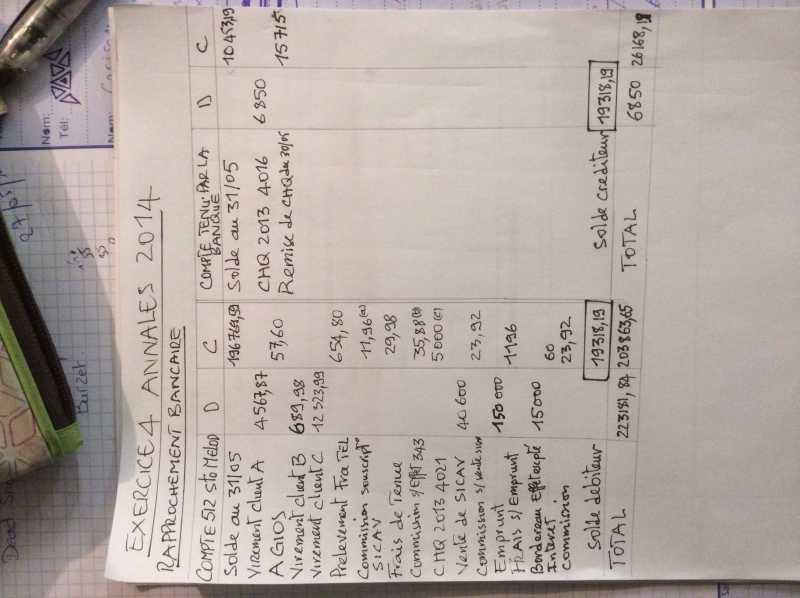 EXERCICE 4 ANNALES 2014
RAPPROCHEMENT BANCAIRE
COMPTE 512 Sto MELOD D C COMPTE TENU PAR LA BANQUE D C
Solde au 31/05 196769,59 Solde au 31/05 10453,19
Virement client A 4567,87 CHQ 2013 4016 6850
AGIOS 57,60 Remise de CHQ du 30/05 15715
Virement client B 689,98
Virement client C 12323,99
Prelevement Fra TEL 654,80
Commission souscript°
SICAV 11,96 (a)
Frais de Tenue 29,98
Commission s/Effet 343 35,88 (b)
CHQ 2013 4021 5000 (c)
Vente de SICAV 40600
Commission s/vente SICAV 23,92
Emprunt 150000
FRAIS s/Emprunt 1196
Bordereau Effet escpté 15000
Interet 60
Commission 23,92
Solde débiteur 19318,19 Solde crediteur 19318,19
TOTAL 223181,84 203863,65 TOTAL 6850 26168,19
Nom:
Tél:
Nom:
Burzet.